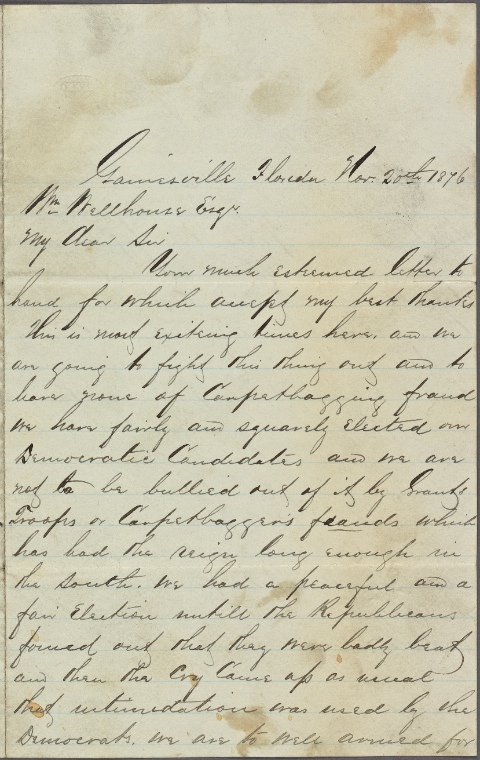 Gainesville Florida Nov. 20th 1876
Wm Wellhouse Esqr
My Dear Sir
Your much esteemed letter to
hand for which accept my best thanks
This is most exiteing times here. and we
are going to fight this thing out and to
have none of Carpetbagging fraud
we have fairly and squarely Elected our
Democratic Candidates and we are
not to be bullied out of it by Grants
Troops or Carpetbaggers frauds which
has had the reign long enough in
the South. We had a peaceful and a
fair Election untill the Republicans
found out that they were badly beat
and then the Cry Came up as usual
that intimedation was used by the
Democrats. we are to well armed for